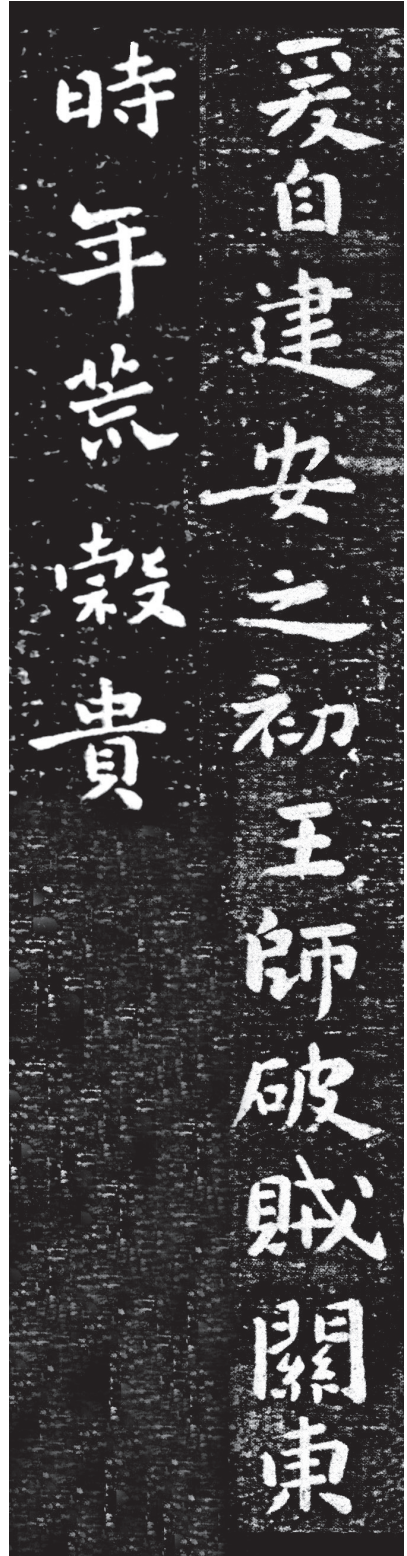 爰自建安之初王師破賊關東
時年荒穀貴